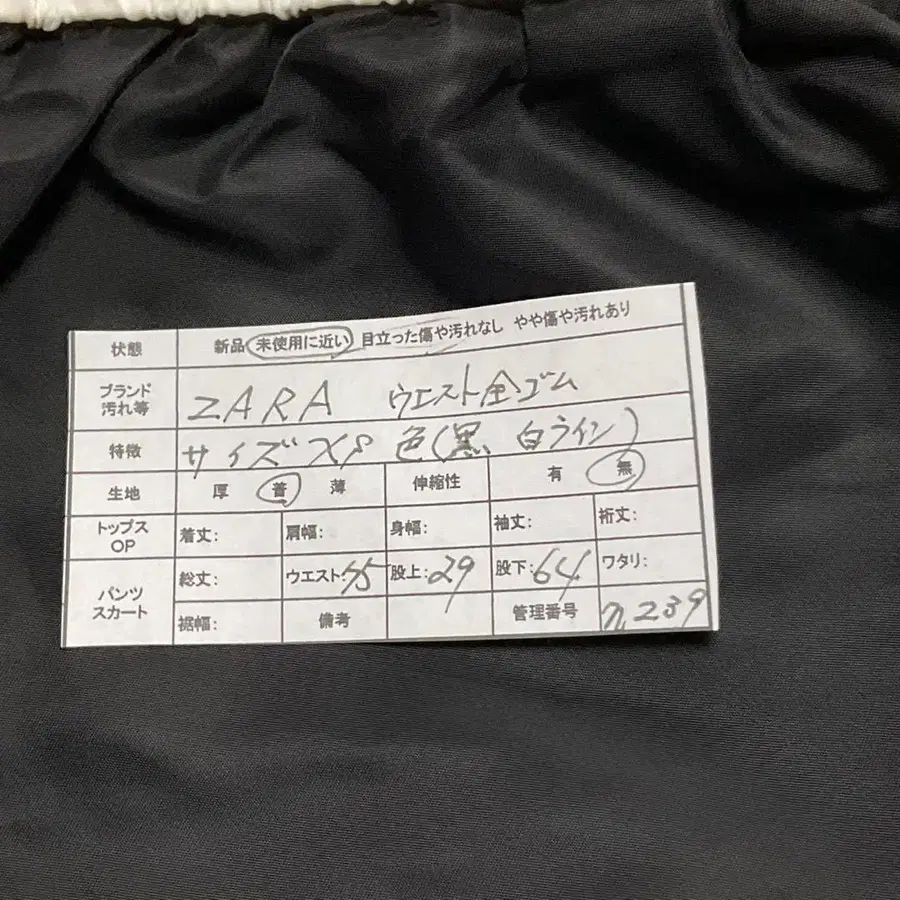 状態 新品 未使用に近い 目立った傷や汚れなし やや傷や汚れあり
ブランド
汚れ等 ZARA ウエスト全ゴム
特徴 サイズXS 色(黒 白ライン)
生地 厚 普 薄 伸縮性 有 無
トップス
OP 着丈: 肩幅: 身幅: 袖丈: 裄丈:
パンツ
スカート 総丈: ウエスト: 股上:29 股下:64 ワタリ:
裾幅: 備考 管理番号 239